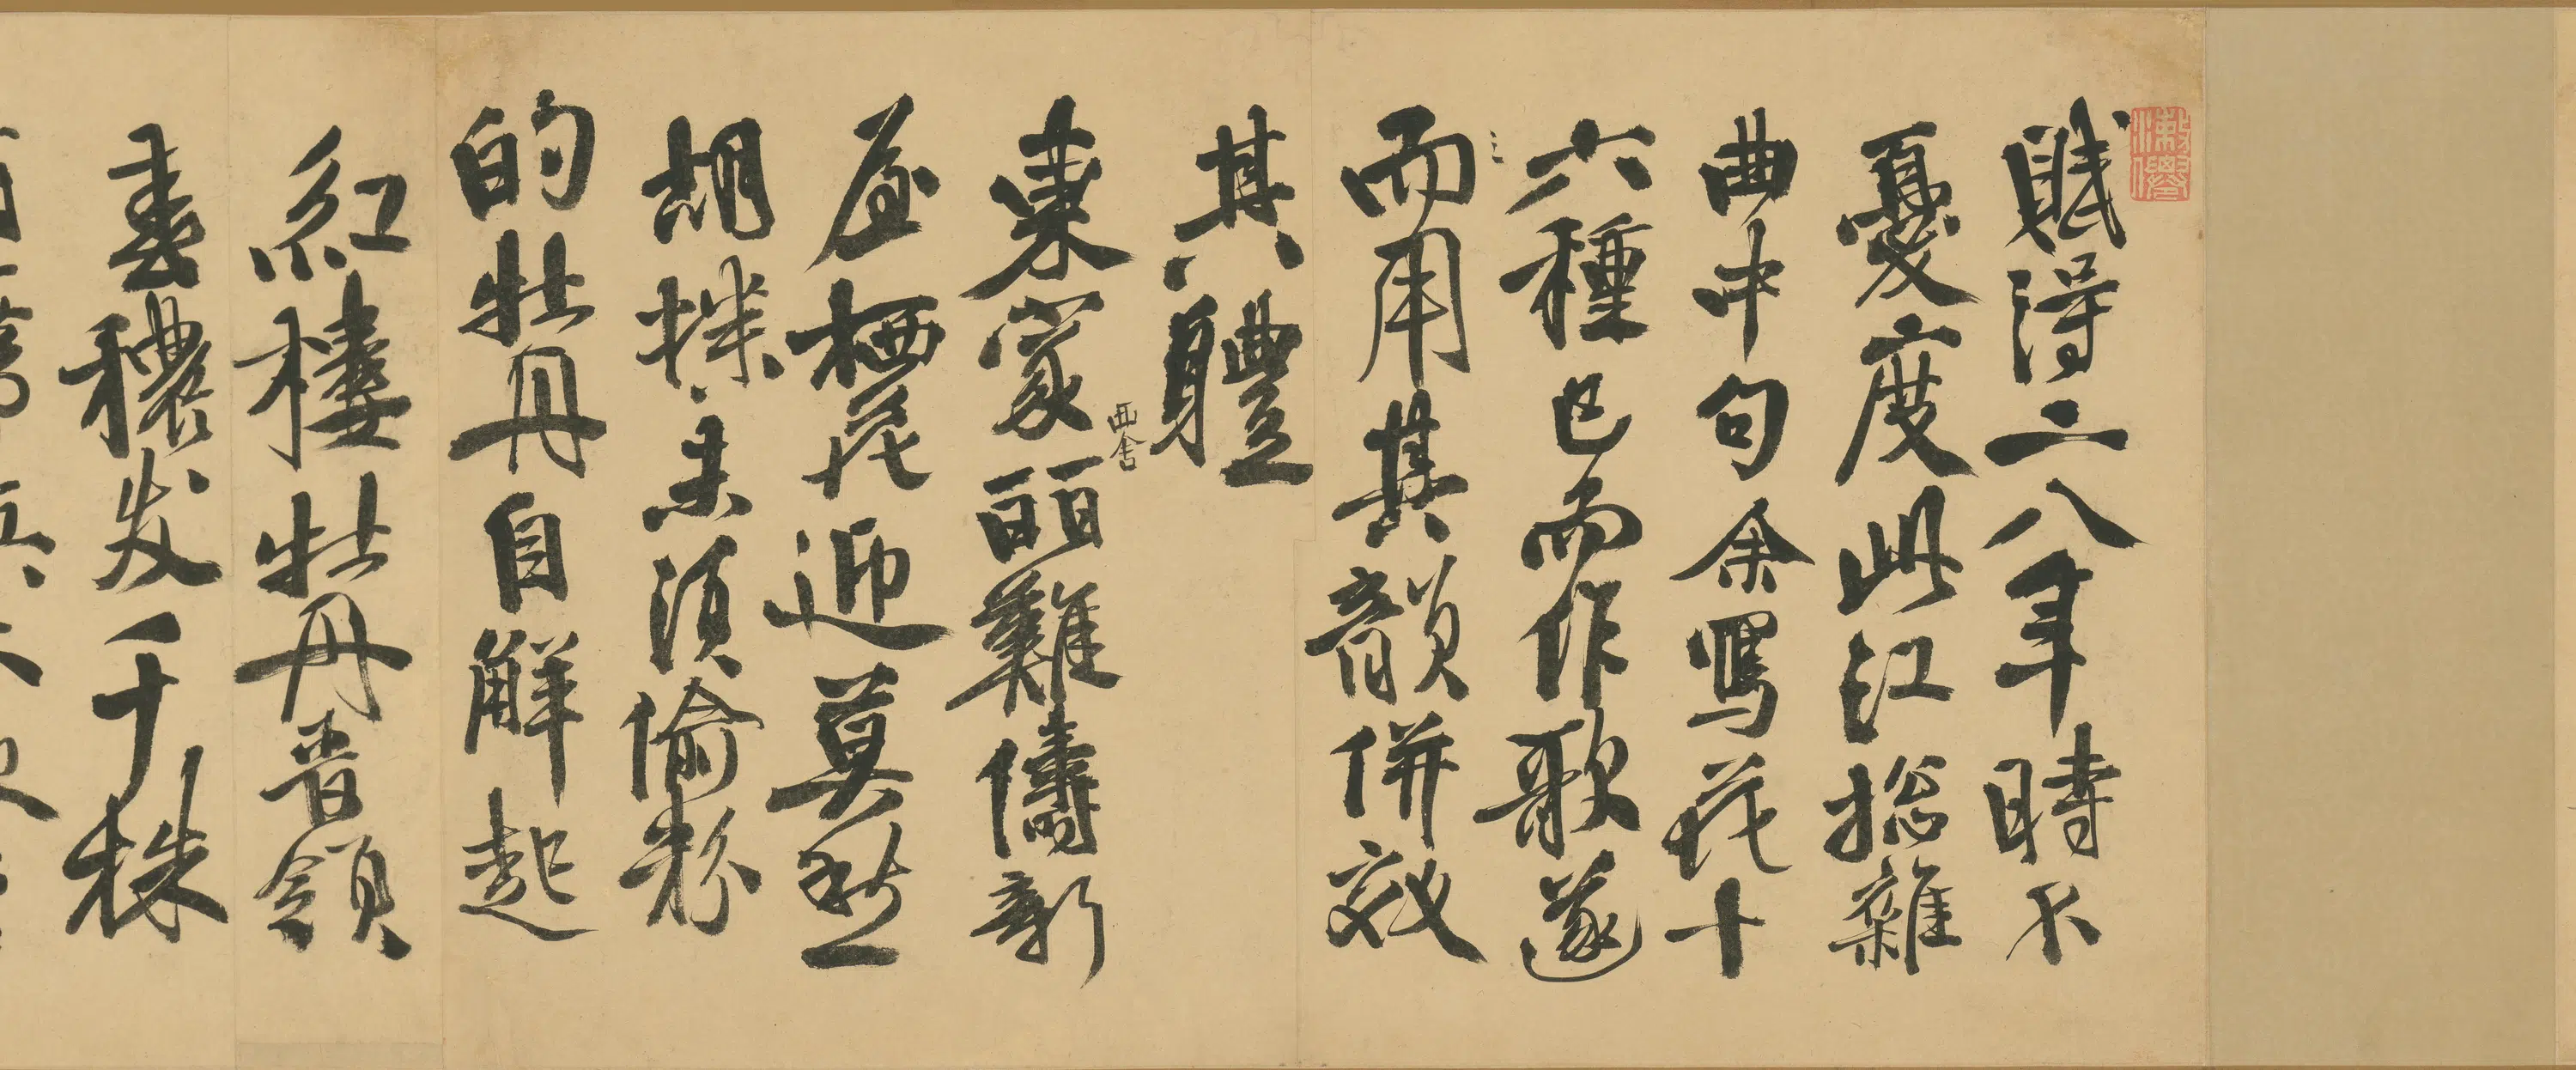 賦得二八年時不
憂度此江總雜
曲中句余寫花十
六種已而作歌遂
而用其韻併效
其體
東家麗難儔新
西舍
屋栖花迎莫愁
胡蝶未須偷粉
的牡丹自解起
紅樓牡丹領
春穠發千株